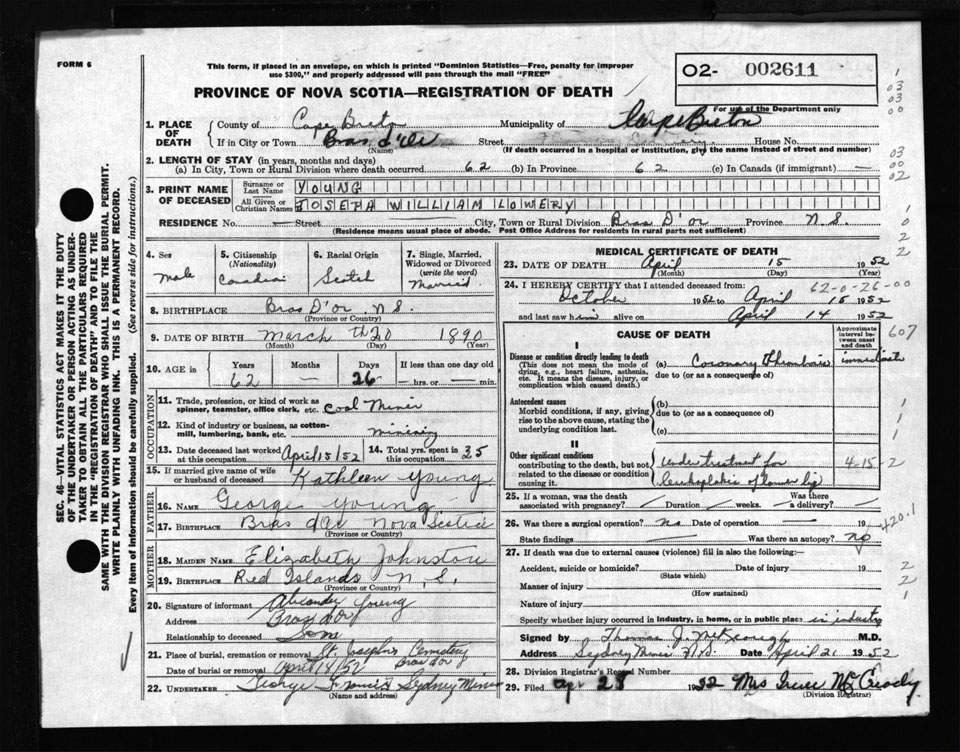 FORM 6
This form, if placed in an envelope, on which is printed "Dominion Statistics—Free, penalty for improper
use $300," and properly addressed will pass through the mail "FREE"
PROVINCE OF NOVA SCOTIA—REGISTRATION OF DEATH
02- 002611
For use of the Department only
1. PLACE OF DEATH
County of Cape Breton Municipality of Cape Breton
If in City or Town Bras d'Or Street House No.
(Name) (If death occurred in a hospital or institution, give the name instead of street and number)
2. LENGTH OF STAY (in years, months and days)
(a) In City, Town or Rural Division where death occurred 62 (b) In Province 62 (c) In Canada (if immigrant) —
3. PRINT NAME OF DECEASED
Surname or Last Name YOUNG
All Given or Christian Names JOSEPH WILLIAM LOWERY
RESIDENCE No. — Street City, Town or Rural Division Bras D'or Province N.S.
(Residence means usual place of abode. Post Office Address for residents in rural parts not sufficient)
4. Sex
Male
5. Citizenship (Nationality)
Canadian
6. Racial Origin
Scotch
7. Single, Married, Widowed or Divorced (write the word)
Married
8. BIRTHPLACE Bras D'or, N.S.
(Province or Country)
9. DATE OF BIRTH March th 20 1890
(Month) (Day) (Year)
10. AGE in
Years 62
Months —
Days 26
If less than one day old
— hrs. or — min.
OCCUPATION
11. Trade, profession, or kind of work as
spinner, teamster, office clerk, etc. Coal Miner
12. Kind of industry or business, as cotton-
mill, lumbering, bank, etc. mining
13. Date deceased last worked at this occupation April 15/52
14. Total yrs. spent in this occupation 35
15. If married give name of wife
or husband of deceased Kathleen Young
FATHER
16. NAME George Young
17. BIRTHPLACE Bras d'Or Nova Scotia
(Province or Country)
MOTHER
18. MAIDEN NAME Elizabeth Johnston
19. BIRTHPLACE Red Islands N.S.
(Province or Country)
20. Signature of informant Alexander Young
Address Bras d'or
Relationship to deceased Son
21. Place of burial, cremation or removal St. Joseph's Cemetery
Bras d'or
Date of burial or removal April
22. UNDERTAKER George Francis Sydney Mines
(Name and address)
MEDICAL CERTIFICATE OF DEATH
23. DATE OF DEATH April 15 1952
(Month) (Day) (Year)
24. I HEREBY CERTIFY that I attended deceased from: 62-0-26-00
October 1952 to April 15 1952
and last saw him alive on April 14 1952
CAUSE OF DEATH
Approximate interval between onset and death
607
I
Disease or condition directly leading to death
(This does not mean the mode of
dying, e.g., heart failure, asthenia,
etc. It means the disease, injury, or
complication which caused death.)
(a) Coronary Thrombosis immediate
due to (or as a consequence of)
Antecedent causes
Morbid conditions, if any, giving
rise to the above cause, stating the
underlying condition last.
(b)
due to (or as a consequence of)
(c)
II
Other significant conditions
contributing to the death, but not
related to the disease or condition
causing it.
Under treatment for
leukoplakia of lower lip
4-15-2
25. If a woman, was the death associated with pregnancy? Duration weeks. Was there a delivery?
26. Was there a surgical operation? no Date of operation — 19
State findings Was there an autopsy? no
420.1
27. If death was due to external causes (violence) fill in also the following:—
Accident, suicide or homicide? Date of injury 19
(State which)
Manner of injury
(How sustained)
Nature of injury
Specify whether injury occurred in industry, in home, or in public place in industry
Signed by Thomas J. M.D.
Address Sydney Mines N.S. Date April 21 1952
28. Division Registrar's Record Number
29. Filed apr 23 1952 Mrs Irene
(Division Registrar)
SEC. 46—VITAL STATISTICS ACT MAKES IT THE DUTY
OF THE UNDERTAKER OR PERSON ACTING AS UNDER-
TAKER TO OBTAIN ALL THE PARTICULARS REQUIRED
IN THE "REGISTRATION OF DEATH" AND TO FILE THE
SAME WITH THE DIVISION REGISTRAR WHO SHALL ISSUE THE BURIAL PERMIT.
WRITE PLAINLY WITH UNFADING INK. THIS IS A PERMANENT RECORD.
Every item of information should be carefully supplied. (See reverse side for instructions.)